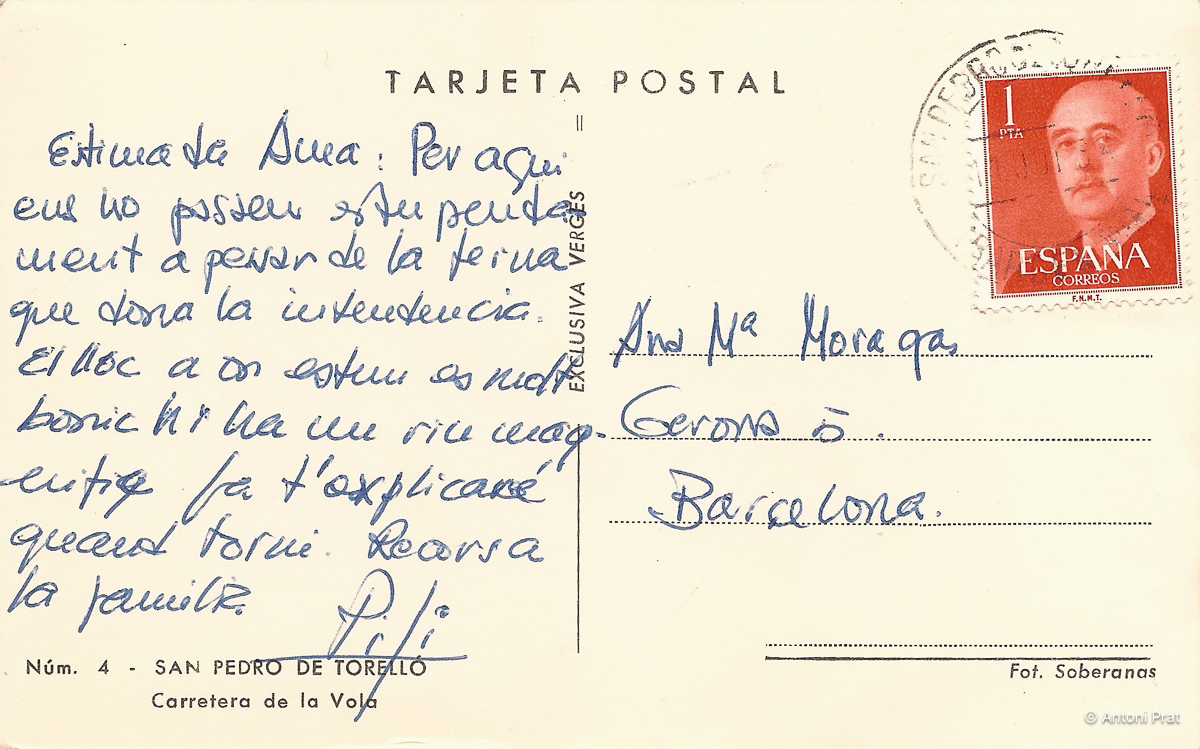 TARJETA POSTAL
Estimada Ana: Per aqui
ens ho passem estupenda
ment a pesar de la feina
que dona la intendencia.
El lloc a on estem es molt
bonic hi ha un riu mag-
nific ja t'explicaré
quand torni. Records a
la familia.
Pili
EXCLUSIVA VERGÉS
Núm. 4 - SAN PEDRO DE TORELLÓ
Carretera de la Vola
1
PTA
ESPAÑA
CORREOS
F.N.M.T.
SAN PEDRO DE
Ana Mª Moragas
Gerona 5.
Barcelona.
Fot. Soberanas
© Antoni Prat